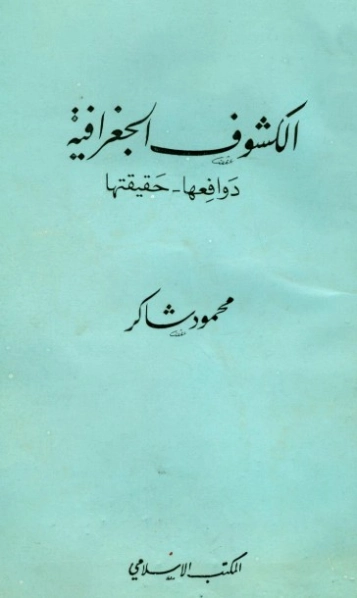 الكشوف الجغرافية
دوافعها - حقيقتها
محمود شاكر
المكتب الإسلامي